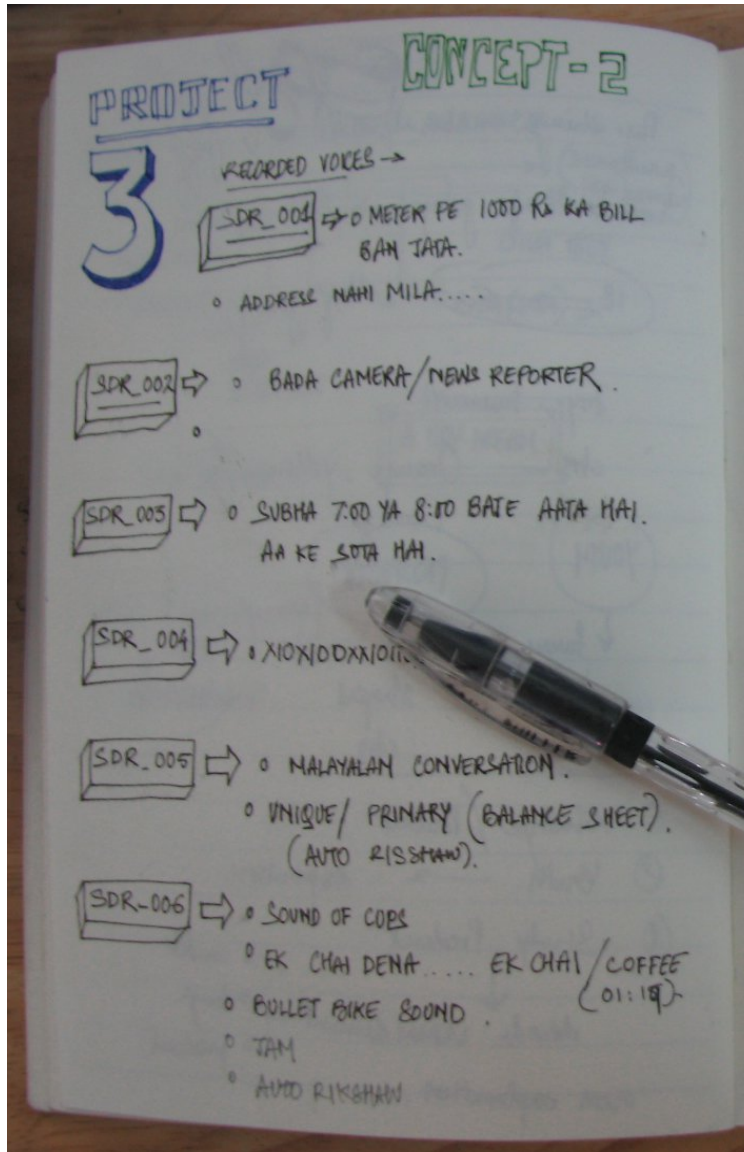 CONCEPT-2
PROJECT
3
RECORDED VOICES →
SDR_001 ⇒ o METER PE 1000 Rs KA BILL
BAN JATA.
o ADDRESS NAHI MILA.....
SDR_002 ⇒ o BADA CAMERA/NEWS REPORTER.
o
SDR_003 ⇒ o SUBHA 7:00 YA 8:00 BAJE AATA HAI.
AA KE SOTA HAI.
SDR_004 ⇒
SDR_005 ⇒ o MALAYALAN CONVERSATION.
o UNIQUE/ PRIMARY (BALANCE SHEET).
(AUTO RISSHAW).
SDR-006 ⇒ o SOUND OF COPS
o EK CHAI DENA ..... EK CHAI / COFFEE
o BULLET BIKE SOUND.
o JAM
o AUTO RIKSHAW